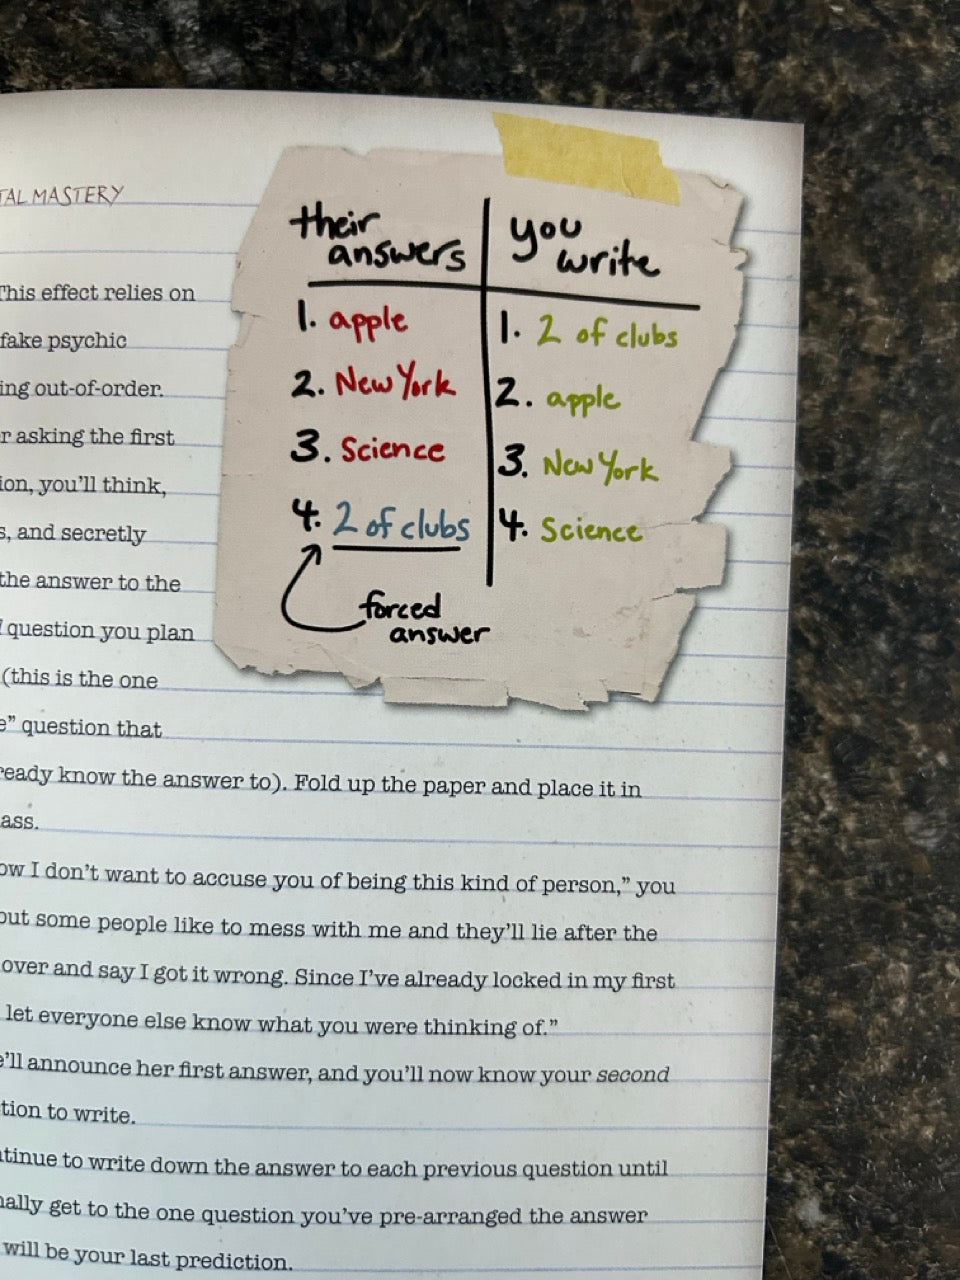 TAL MASTERY
their answers | you write
1. apple | 1. 2 of clubs
2. New York | 2. apple
3. Science | 3. New York
4. 2 of clubs | 4. Science
forced
answer
This effect relies on
fake psychic
ing out-of-order.
r asking the first
ion, you'll think,
s, and secretly
the answer to the
question you plan
(this is the one
e" question that
ready know the answer to). Fold up the paper and place it in
ass.
ow I don't want to accuse you of being this kind of person," you
but some people like to mess with me and they'll lie after the
over and say I got it wrong. Since I've already locked in my first
let everyone else know what you were thinking of."
e'll announce her first answer, and you'll now know your second
tion to write.
ntinue to write down the answer to each previous question until
nally get to the one question you've pre-arranged the answer
will be your last prediction.